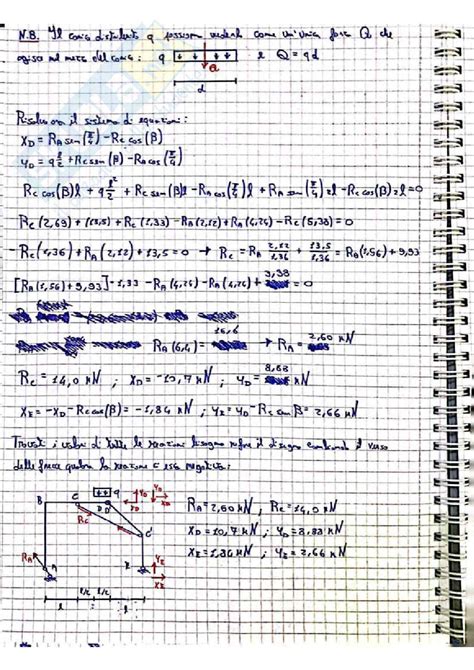 N.B. Il carico distribuito q possiamo vederlo come un'unica forza Q che
agisce nel mezzo del carico: q Q l Q = qd
d
Risolviamo il sistema di equazioni:
X_D = R_A sen(π/4) - R_C cos(β)
Y_D = q l/2 + R_C sen(β) - R_A cos(π/4)
R_C cos(β)l + q l²/2 + R_C sen(β)l - R_A cos(π/4)l + R_A sen(π/4)2l - R_C cos(β)2l = 0
R_C(2,69) + (13,5) + R_C(1,33) - R_A(2,12) + R_A(4,24) - R_C(5,38) = 0
-R_C(1,36) + R_A(2,12) + 13,5 = 0 → R_C = R_A 2,12/1,36 + 13,5/1,36 = R_A(1,56) + 9,93
[R_A(1,56) + 9,93]·1,33 - R_A(4,24) - R_A(4,24) + 3,38 = 0
R_A(6,4) = 16,6 → R_A = 2,60 kN
R_C = 14,0 kN ; X_D = -10,7 kN ; Y_D = 8,88 kN
X_E = -X_D - R_C cos(β) = -1,84 kN ; Y_E = Y_D - R_C sen β = 2,66 kN
Trovati i valori di tutte le reazioni bisogna rifare il disegno cambiando il verso
delle forze qualora la reazione è negativa:
q Y_D Y_D
B C D D X_D X_D
R_C C'
R_A A E Y_E
X_E
l/2 l/2
l = l
R_A = 2,60 kN ; R_C = 14,0 kN
X_D = 10,7 kN ; Y_D = 8,88 kN
X_E = 1,84 kN ; Y_E = 2,66 kN